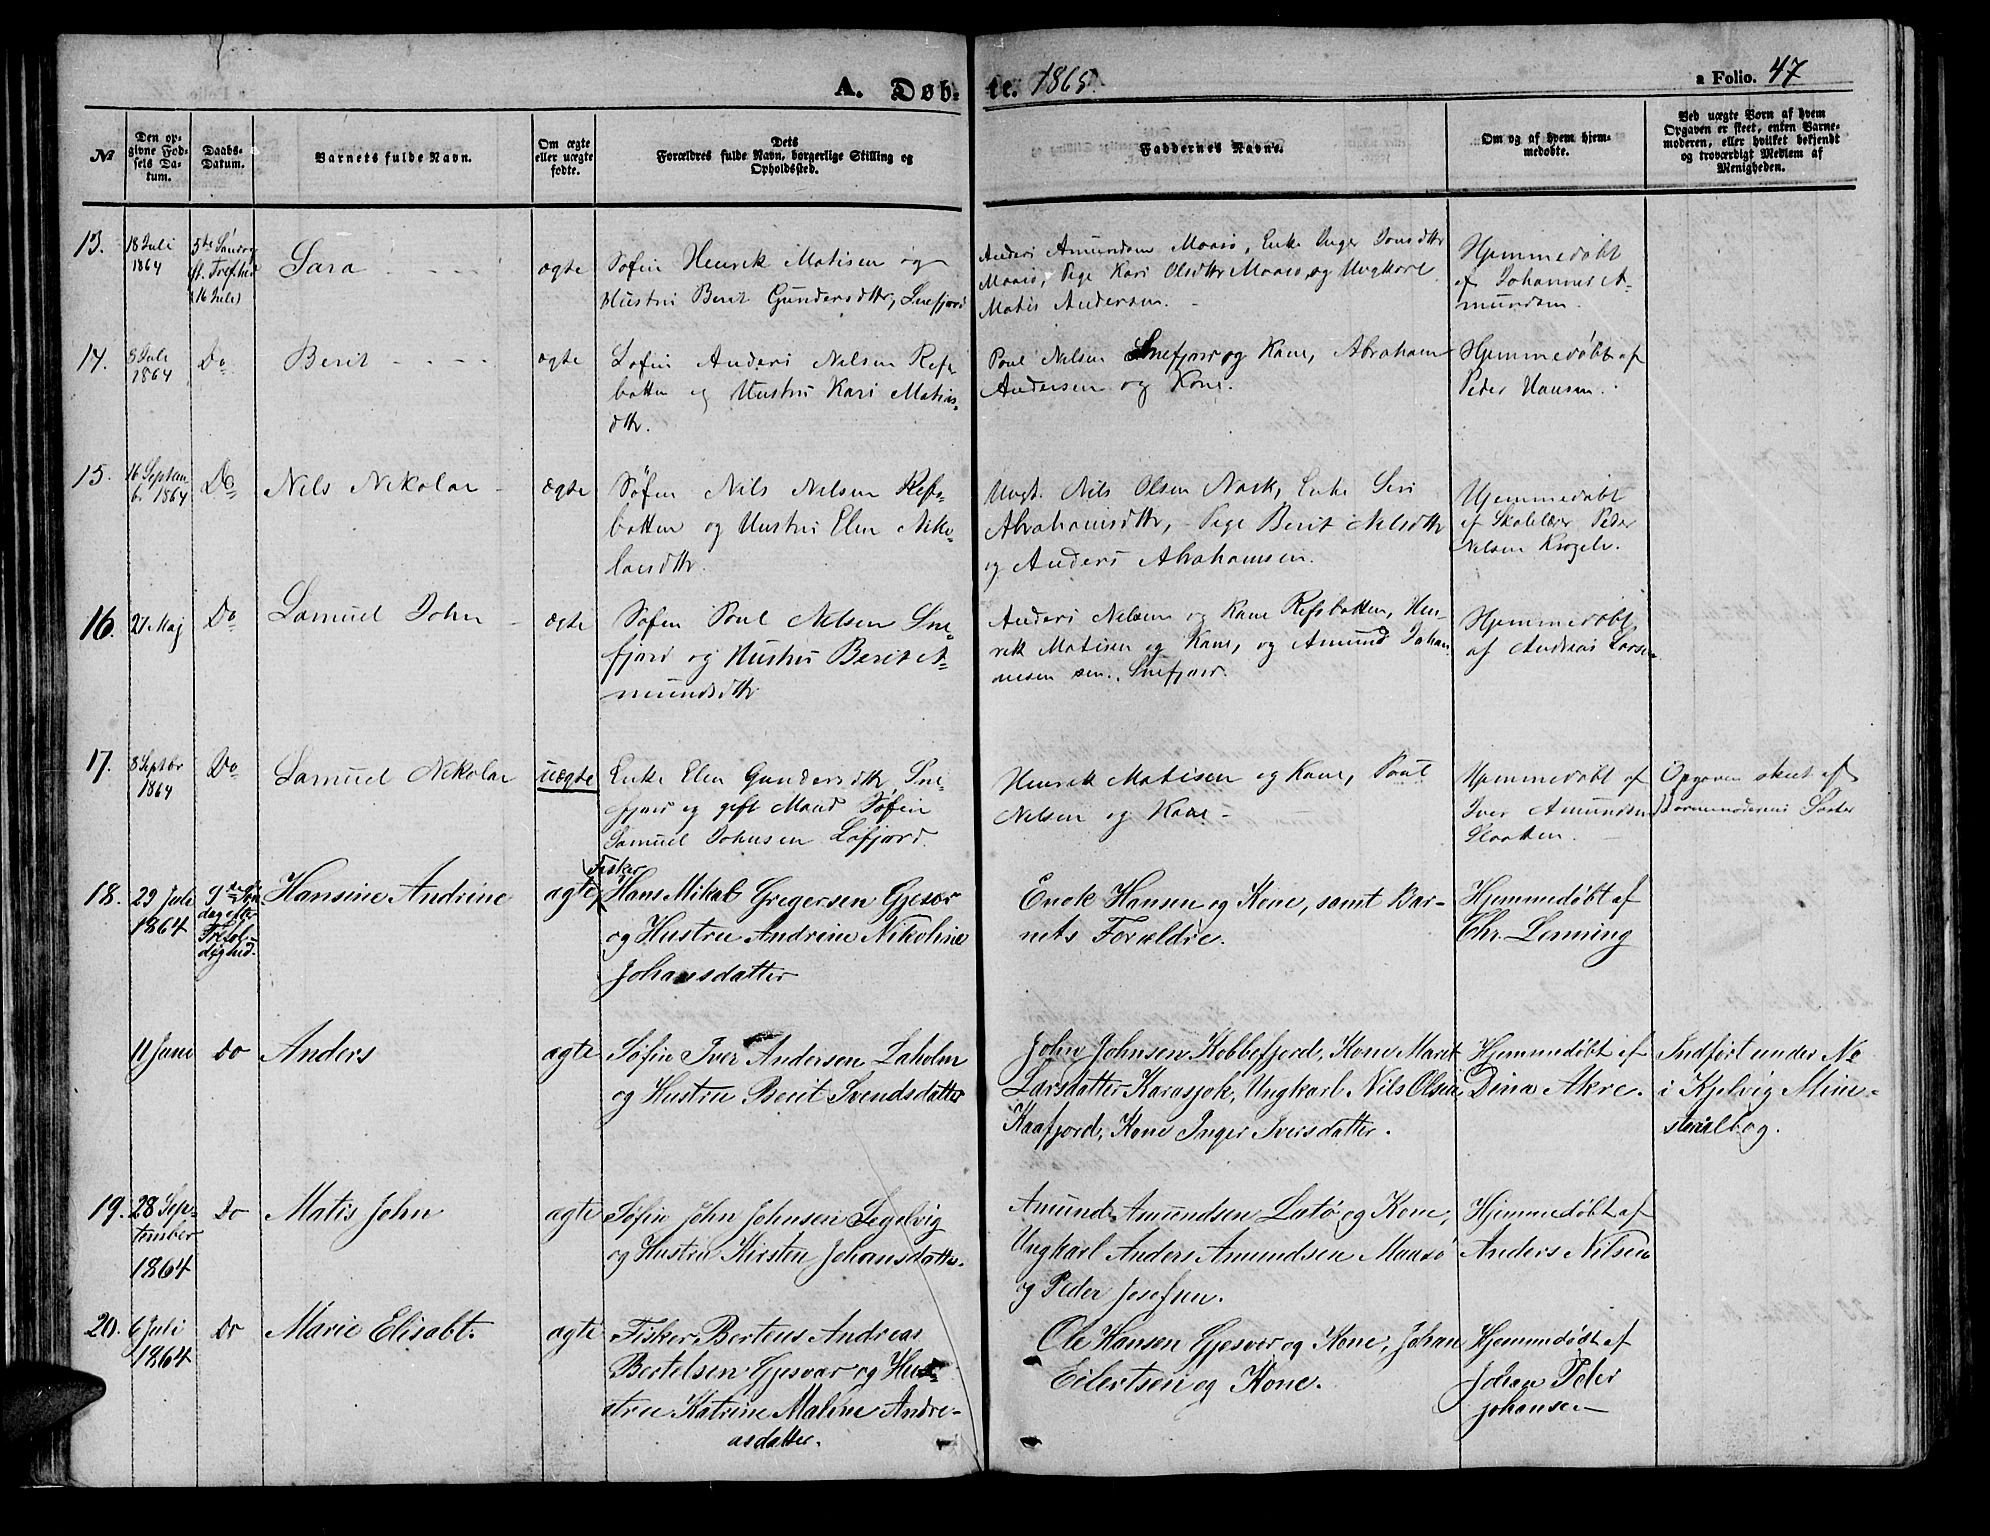 A. Døb-
te. 1865.
a Folio. 47
No
Den op-
givne Fød-
sels Da-
tum.
Daabs-
Datum.
Barnets fulde Navn.
Om ægte
eller uægte
fødte.
Dets
Forældres fulde Navn, borgerlige Stilling og
Opholdssted.
Faddernes Navne.
Om og af hvem hjem-
medøbte.
Ved uægte Børn af hvem
Opgaven er skeet, enten Barne-
moderen, eller hvilket bekjendt
og troværdigt Medlem af
Menigheden.
13.
18 Juli
1864
5te Søndag
ft. Trefhed
(16 Juli)
Sara
ægte
Søfin Henrik Matisen og
Hustru Berit Gundersdtr, Snefjord
Anders Amundsen Maasø, Enke Inger Jonsdttr
Maasø, Pige Kari Olsdttr Maasø, og Ungkarl
Matis Andersen.
Hjemmedøbt
af Johannes A-
mundsen.
14.
8 Juli
1864
Do
Berit
ægte
Søfin Anders Nelsen Refs
botten og Hustru Kari Matis-
dtr.
Poul Nelsen Snefjord og Kone, Abraham
Andersen og Kone.
Hjemmedøbt af
Peder Hansen.
15.
16 Septem
b. 1864
Do
Nils Nikolai
ægte
Søfin Nils Nelsen Refs-
botten og Hustru Elen Niko-
laisdtr.
Ungk. Nils Olsen Nark, Enke Siri
Abrahamsdttr, Pige Berit Nelsdttr
og Anders Abrahamsen.
Hjemmedøbt
af Skolelærer Peder
Nelsen Krogelv.
16.
27 Maj
Do
Samuel John
ægte
Søfin Poul Nelsen Sne-
fjord og Hustru Berit A-
mundsdtr.
Anders Nelsen og Kone Refsbotten, Hen-
rik Matisen og Kone, og Amund Johan
nesen sen., Snefjord.
Hjemmedøbt
af Andreas Larsen
17.
8 Septbr
1864
Do
Samuel Nikolai
uægte
Enke Elen Gundersdttr, Sne-
fjord og gift Mand Søfin
Samuel Johnsen Lafjord.
Henrik Matisen og Kone, Poul
Nelsen og Kone
Hjemmedøbt af
Iver Amundsen
Slaatten.
Opgaven skeet af
Barnemoderens Søster
18.
29 Juli
1864
9de Søn
dag efter
Trefol-
dighed.
Hansine Andrine
ægte
Fisker
Hans Mikal Gregersen Gjesvær
og Hustru Andrine Nikoline
Johansdatter
Enok Hansen og Kone, samt Bar-
nets Forældre.
Hjemmedøbt af
Chr. Lenning
11 Juni
Do
Anders
ægte
Søfin Iver Andersen Laholm
og Hustru Berit Svendsdatter
John Johnsen Kobbefjord, Kone Maret
Larsdatter Karasjok, Ungkarl Nils Olsen
Kaafjord, Kone Inger Iversdatter.
Hjemmedøbt af
Dina Akre.
Indført under No
i Kjelvig Mini-
sterialbog.
19.
28 Sep-
tember
1864
Do
Matis John
ægte
Søfin John Johnsen Segelvig
og Hustru Kirsten Johansdatter.
Amund Amundsen Latø og Kone,
Ungkarl Anders Amundsen Maasø
og Peder Josefsen.
Hjemmedøbt af
Anders Nilsen
20.
6 Juli
1864
Do
Marie Elisabt.
ægte
Fisker Berteus Andreas
Bertelsen Gjesvær og Hu-
stru Katrine Maline Andre-
asdatter.
Ole Hansen Gjesvær og Kone, Johan
Eilertsen og Kone.
Hjemmedøbt af
Johan Peder
Johansen